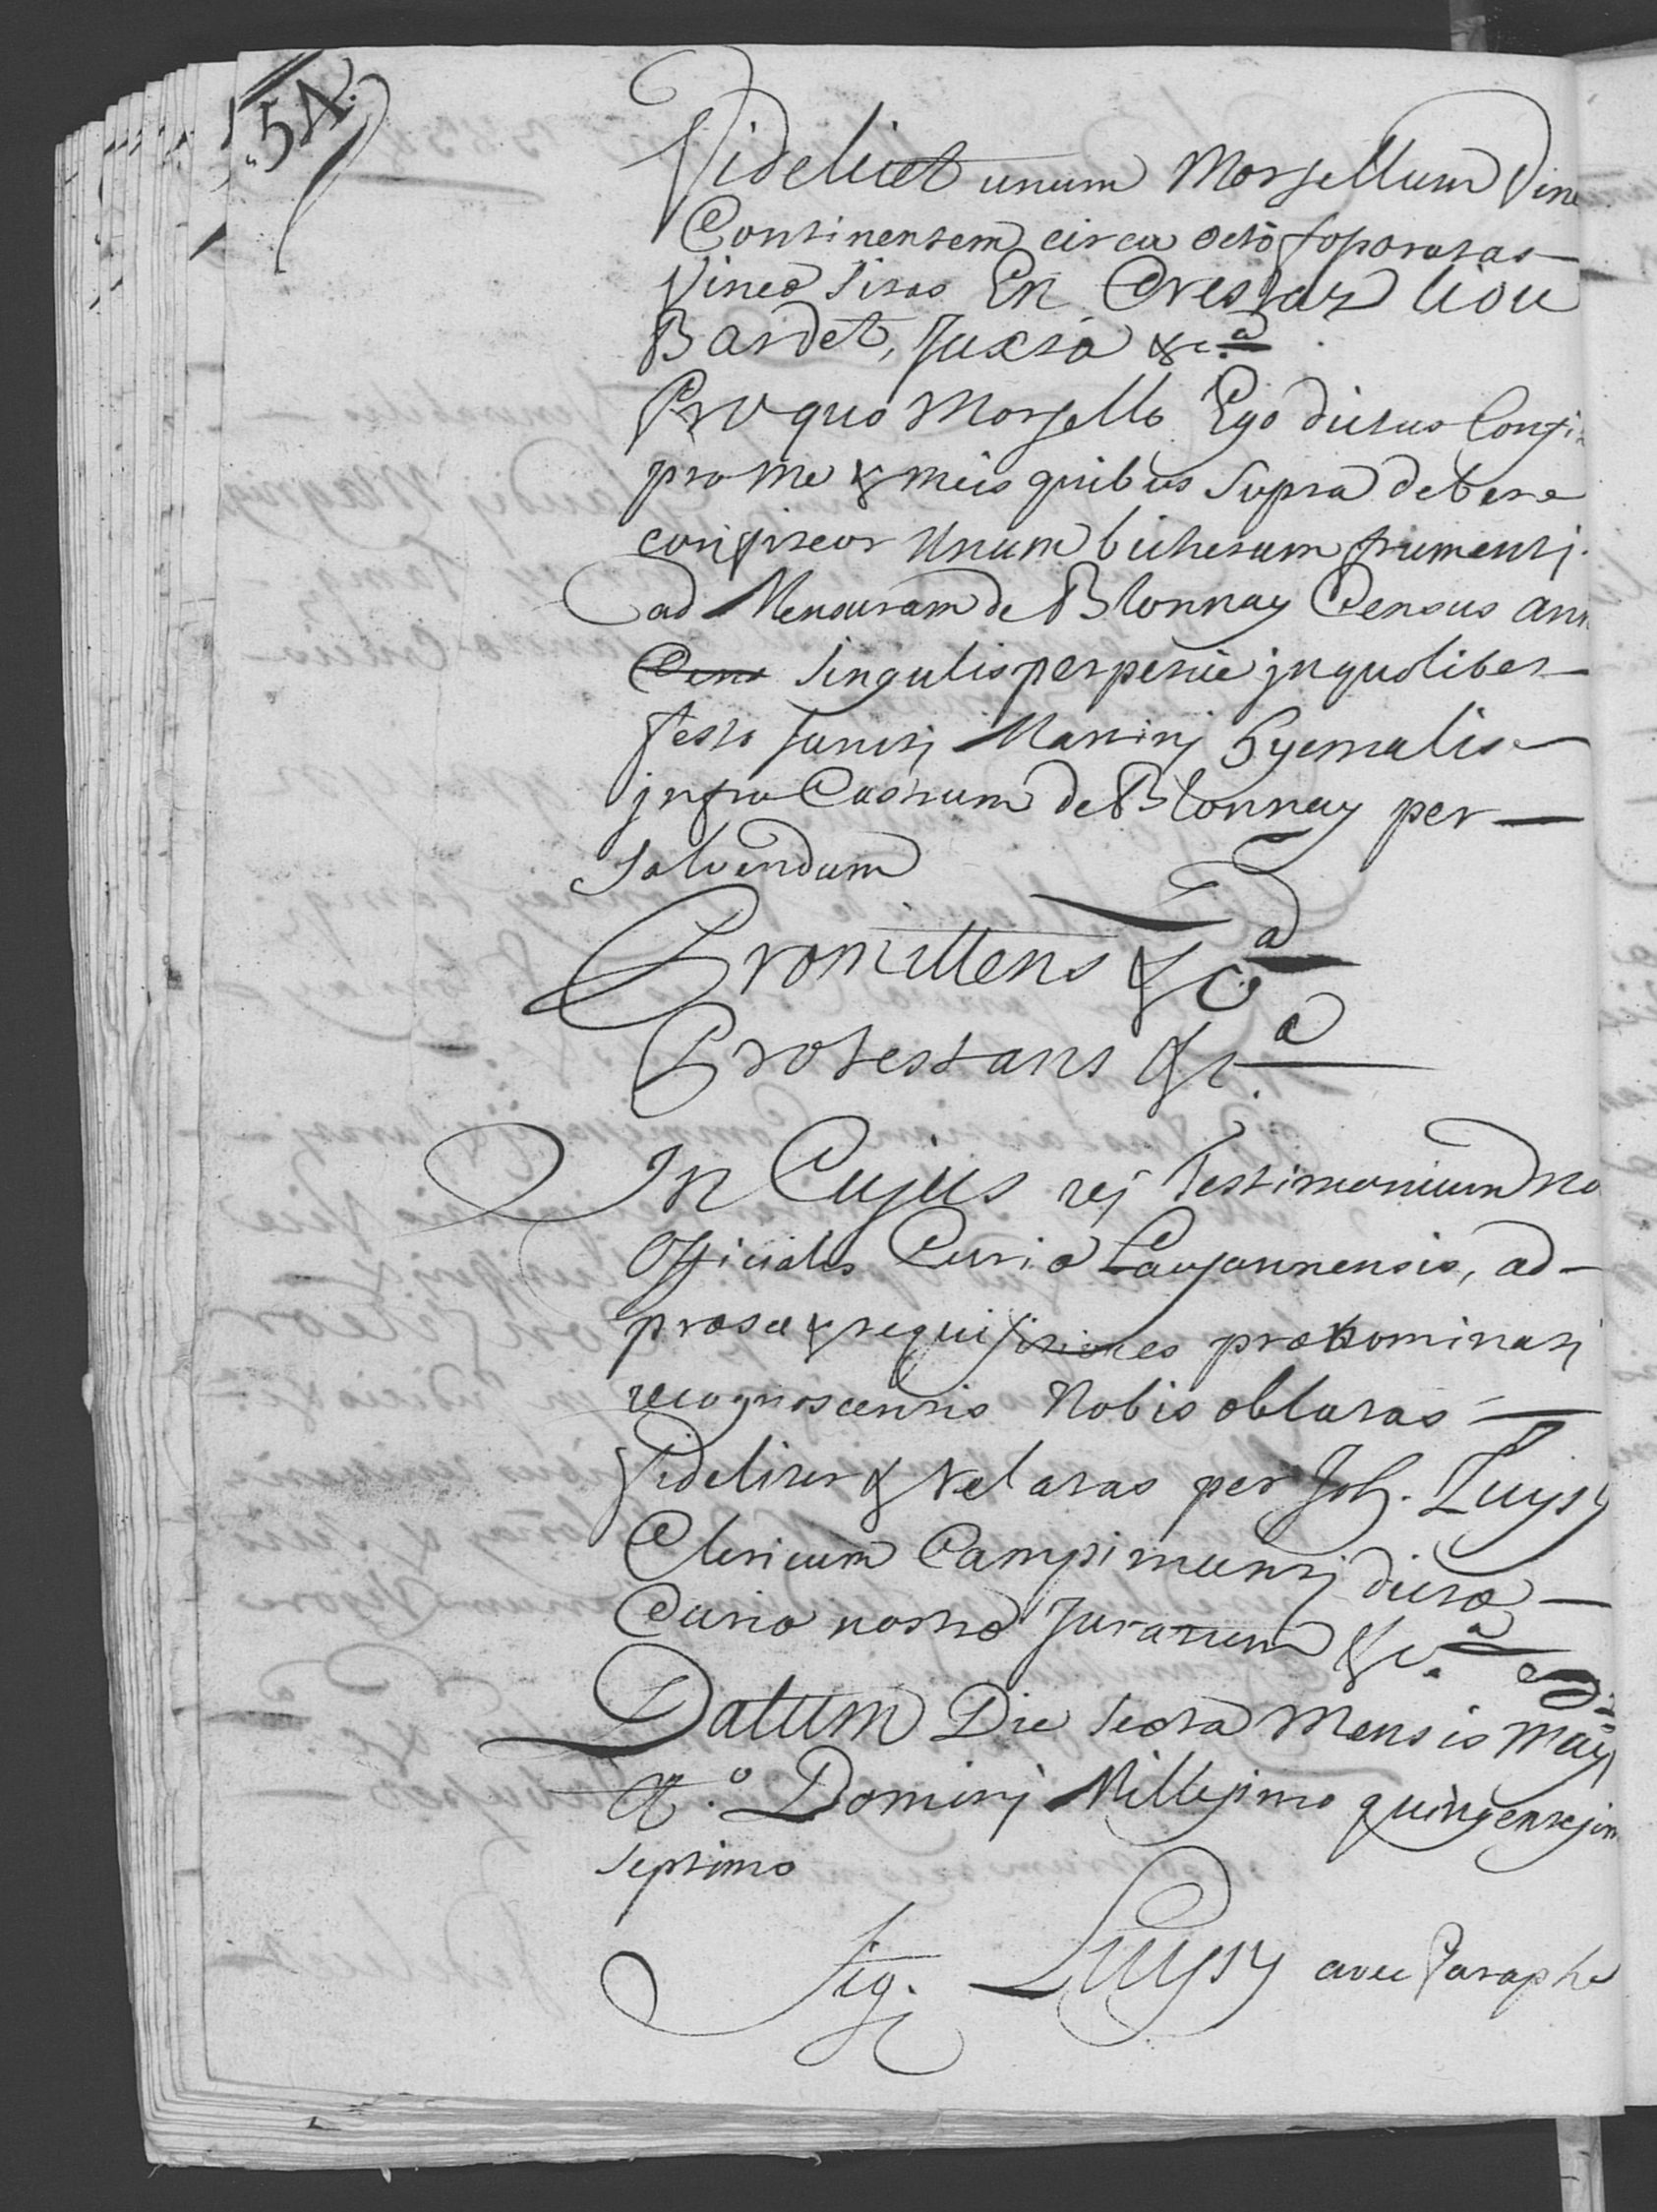 54.
Videlicet unum Morsellum Vine
Continentem circa octo foporatas
Vineæ sitas En Crestaz liou
Bardet, Juxtà &c.a
Pro quo Morsello Ego dictus Confi
pro me & meis quibus Supra debere
confiteor Unum bichetum frumentj
ad Mensuram de Blonnay Census ann
Cens Singulis perpetue jn quolibet
festo sanctj Martinj hyemalis
jnfra Castrum de Blonnay per
solvendum
Promittens &c.a
Protestans &c.a
In Cujus rej Testimonium no
Officialis Curiæ Lausannensis, ad
preces & requisitiones prænominatj
recognoscentis Nobis oblatas
fideliter & relatas per Joh. Luysy
Clericum Campimuntj dictæ
Curiæ nostræ Juratum &c.a
Datum Die sexta Mensis Maij
A.o Dominj Millesimo quingentesim
septimo
Sig. Luysy avec Paraphe